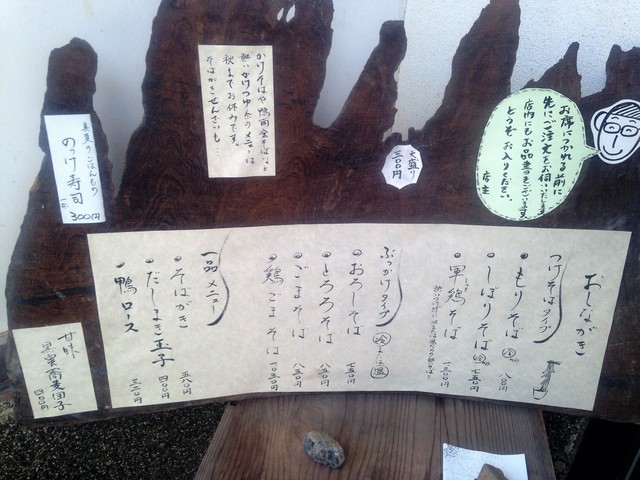 お席につかれる前に
先にご注文をお伺いします
店内にもお品書きございます
どうぞ お入りください。
店主
大盛り
三〇〇円
かけそばや 鴨南蛮そばなど
熱いかけつゆ系のメニューは
秋までお休みです。
そばがきぜんざいも…
真夏のごはんもの
のっけ寿司
300円
おしながき
つけそばタイプ
もりそば
しぼりそば 七五〇
軍鶏そば 一三〇〇
ぶっかけタイプ 冷または温
おろしそば 七五〇
とろろそば 八五〇
ごまそば 八五〇
鶏ごまそば 一〇五〇
一品メニュー
そばがき 五八〇
だしまき玉子 四〇〇
鴨ロース 三二〇
甘味
黒蜜蕎麦団子
四〇〇円